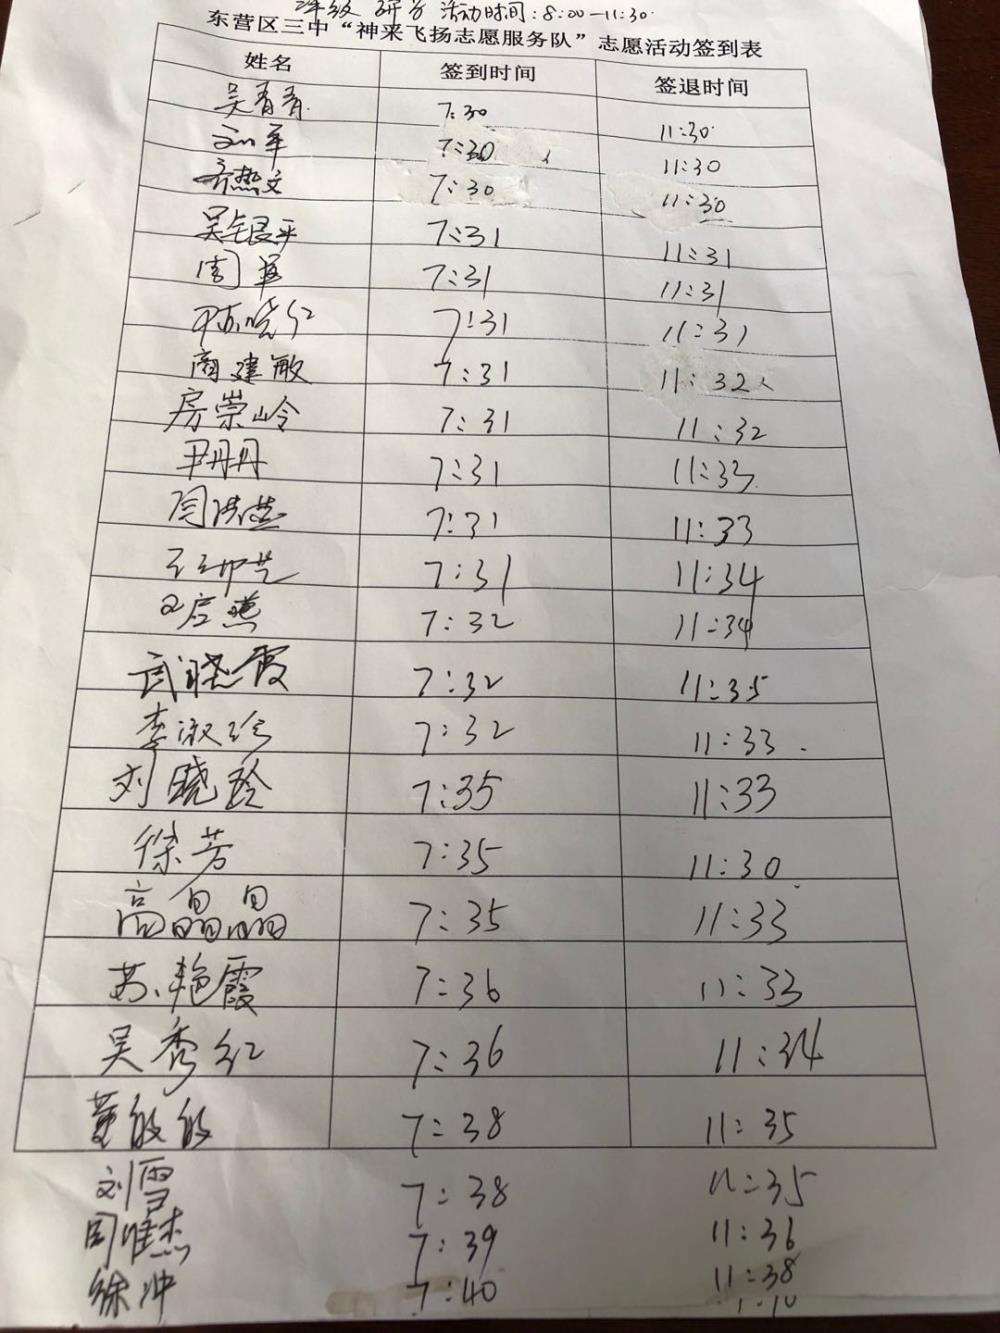 活动时间:8:00-11:30
东营区三中“神来飞扬志愿服务队”志愿活动签到表
姓名 签到时间 签退时间
吴青青 7:30 11:30
刘军 7:30 11:30
7:30 11:30
吴银平 7:31 11:31
周 7:31 11:31
陈晓红 7:31 11:31
商建敏 7:31 11:32
房崇岭 7:31 11:32
尹丹丹 7:31 11:33
7:31 11:33
7:31 11:34
7:32 11:34
武晓霞 7:32 11:35
李淑珍 7:32 11:33
刘晓玲 7:35 11:33
徐芳 7:35 11:30
高晶晶 7:35 11:33
苏艳霞 7:36 11:33
吴秀红 7:36 11:34
董敏敏 7:38 11:35
刘雪 7:38 11:35
周唯杰 7:39 11:36
徐冲 7:40 11:38